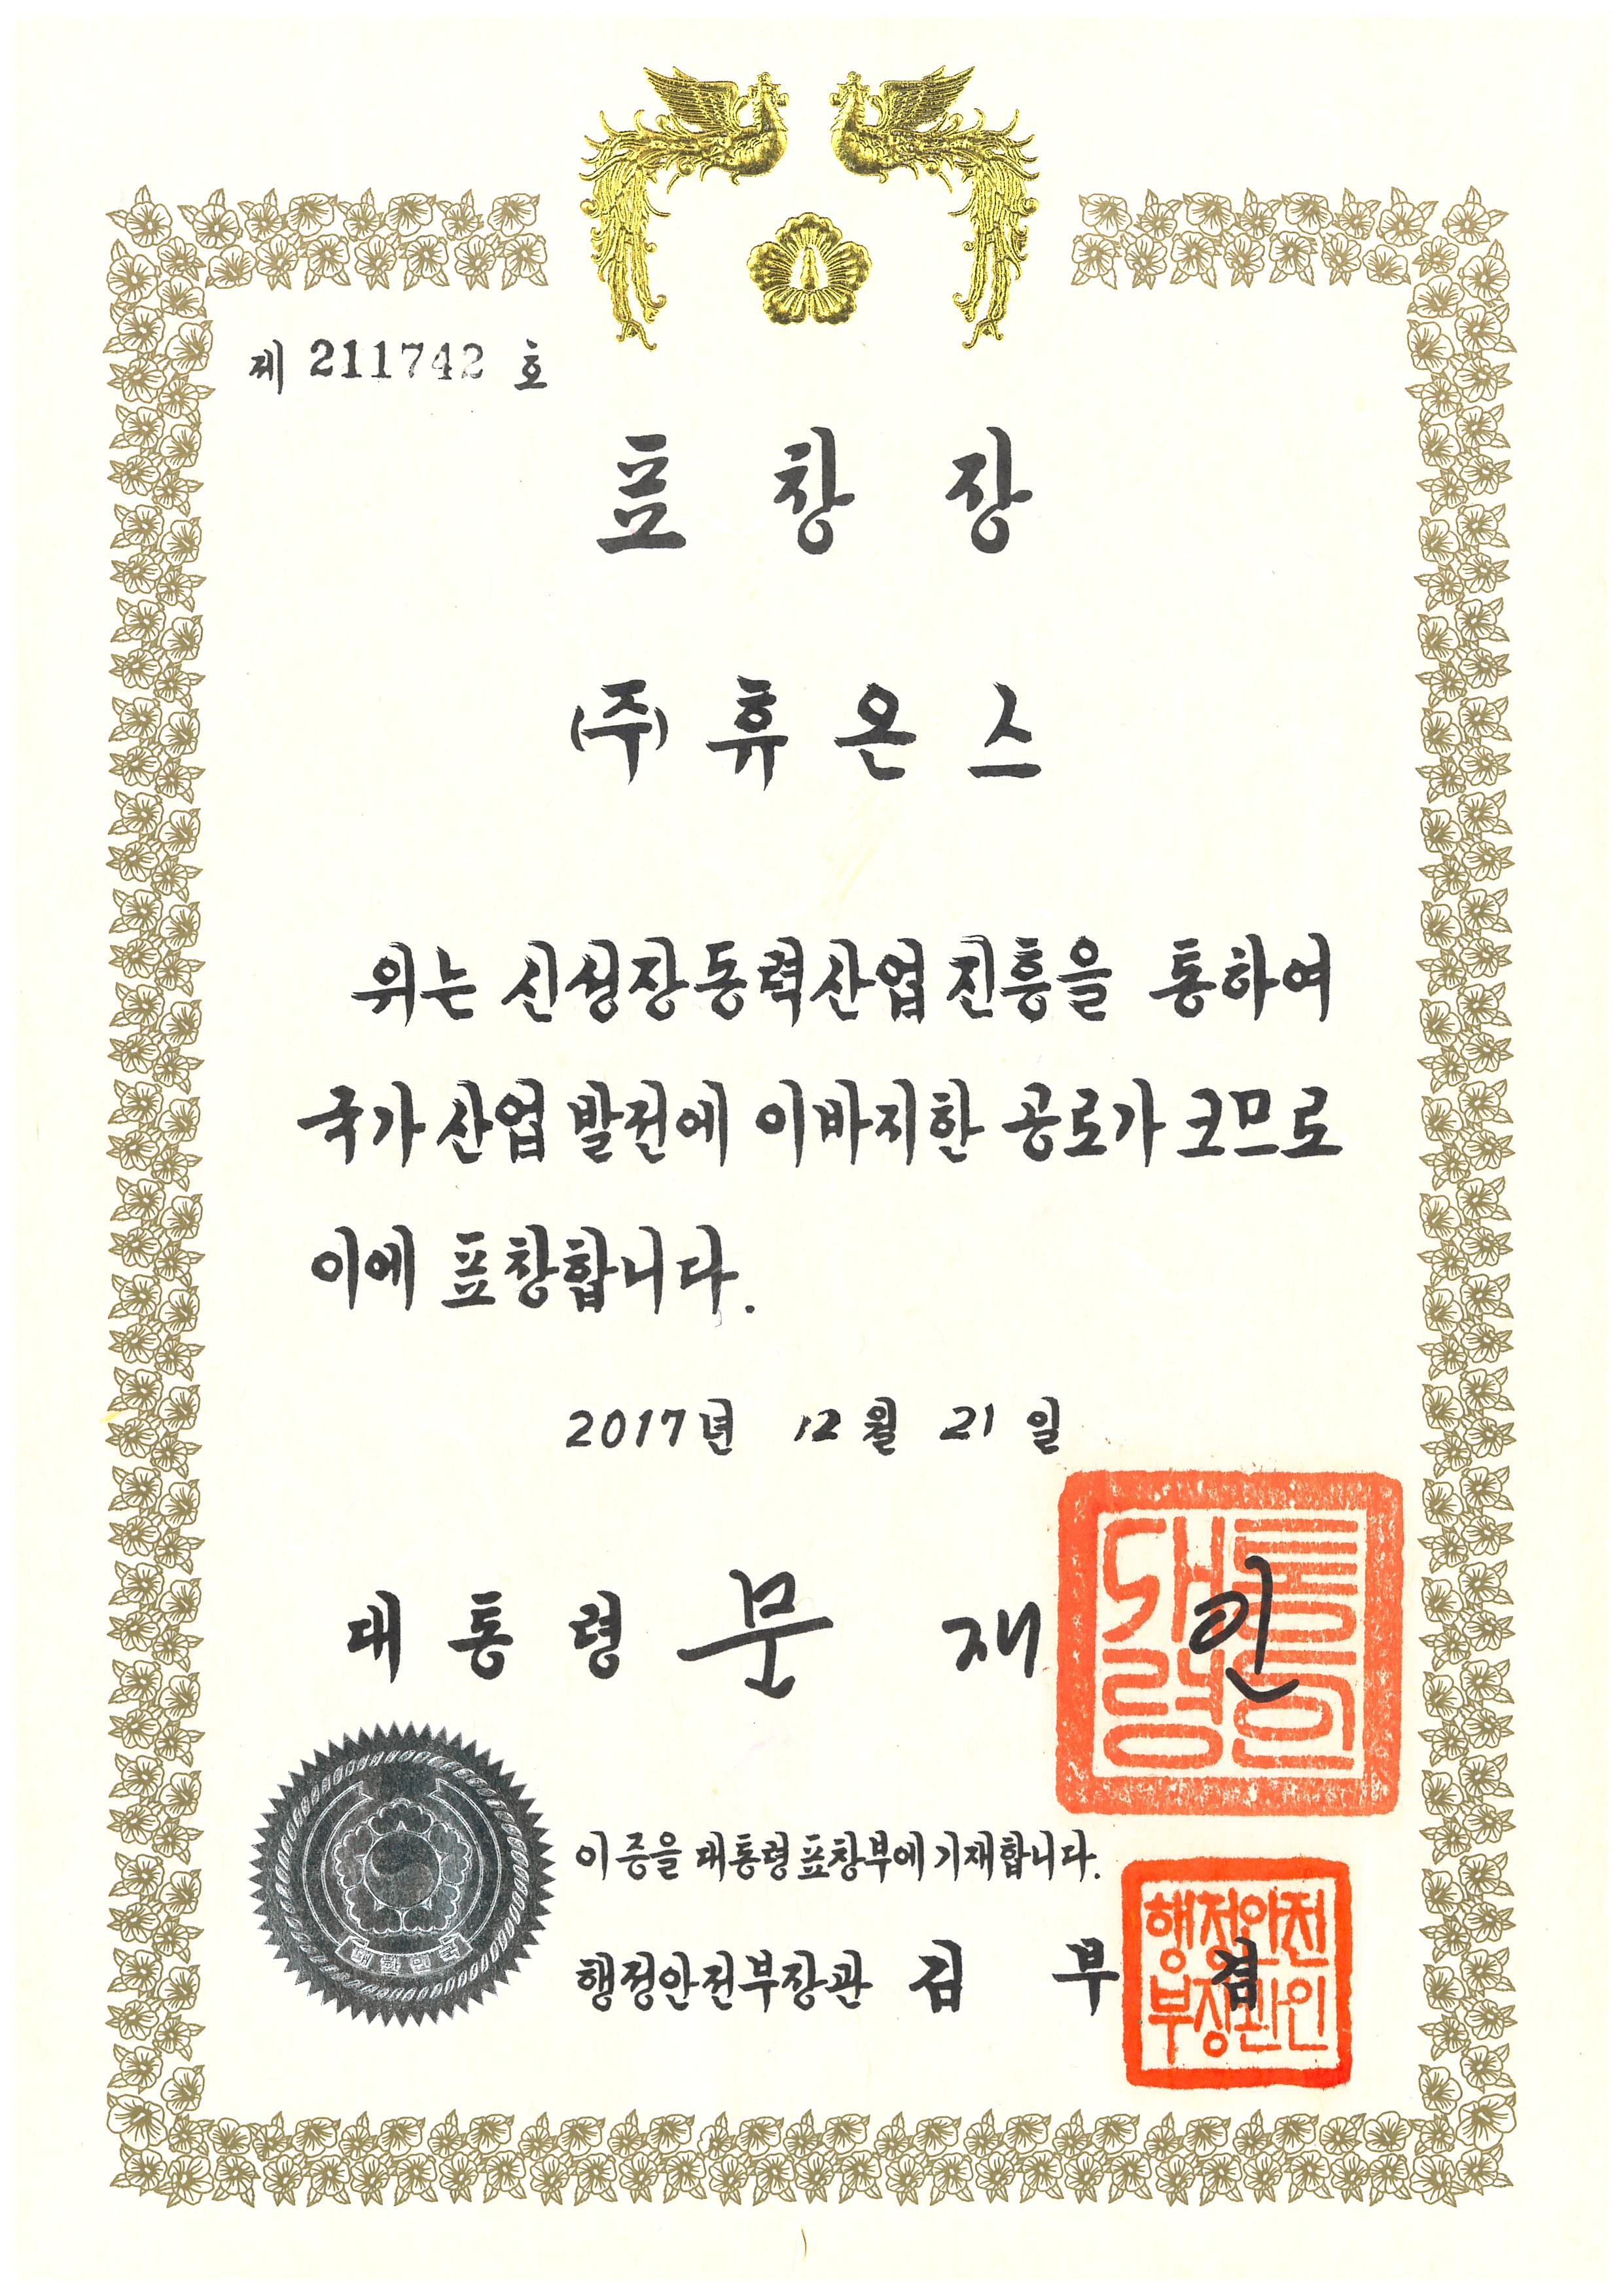 제 211742 호
표 창 장
(주) 휴 온 스
위는 신성장동력산업진흥을 통하여
국가산업발전에 이바지한 공로가 크므로
이에 표창합니다.
2017년 12월 21일
대 통 령 문 재 인
대통령인
대한민국
이 증을 대통령표창부에 기재합니다.
행정안전부장관 김 부 겸
행정안전
부장관인